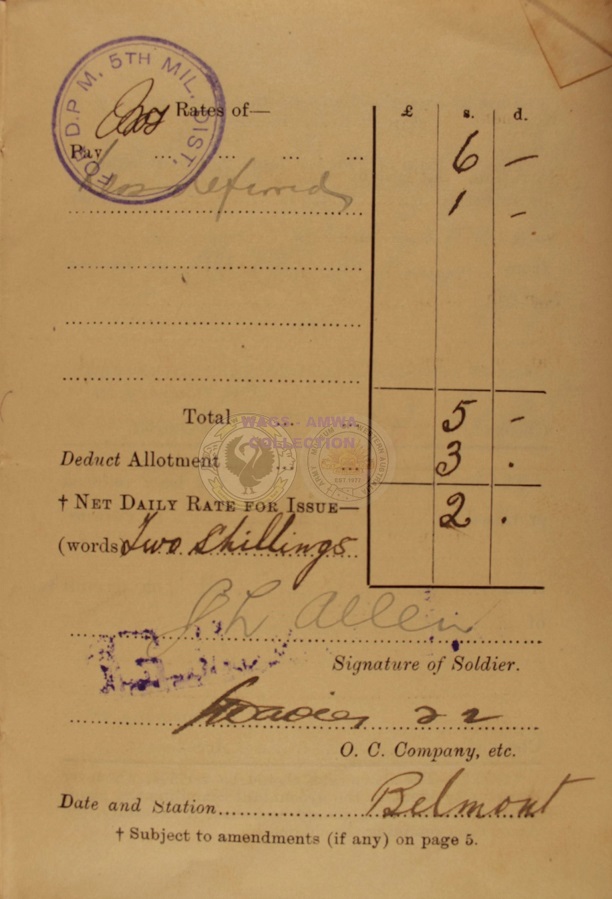 FOR D.P.M. 5TH MIL. DIST.
Rates of— £ s. d.
Pay ... ... ... ... 6 –
Less deferred 1 –
Total ... ... 5 –
WAGS AMWA
COLLECTION
Deduct Allotment ... ... 3 .
† NET DAILY RATE FOR ISSUE— 2 .
(words) Two Shillings
G L Allen
Signature of Soldier.
O. C. Company, etc.
Date and Station Belmont
† Subject to amendments (if any) on page 5.